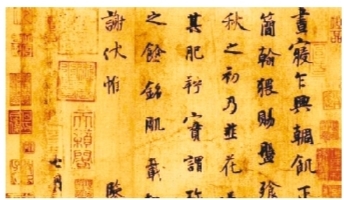 晝寢乍興輖飢正
簡翰猥賜盤飧
秋之初乃韭花逞
其肥羜實謂珍
之餘銘肌載
謝伏惟
七月